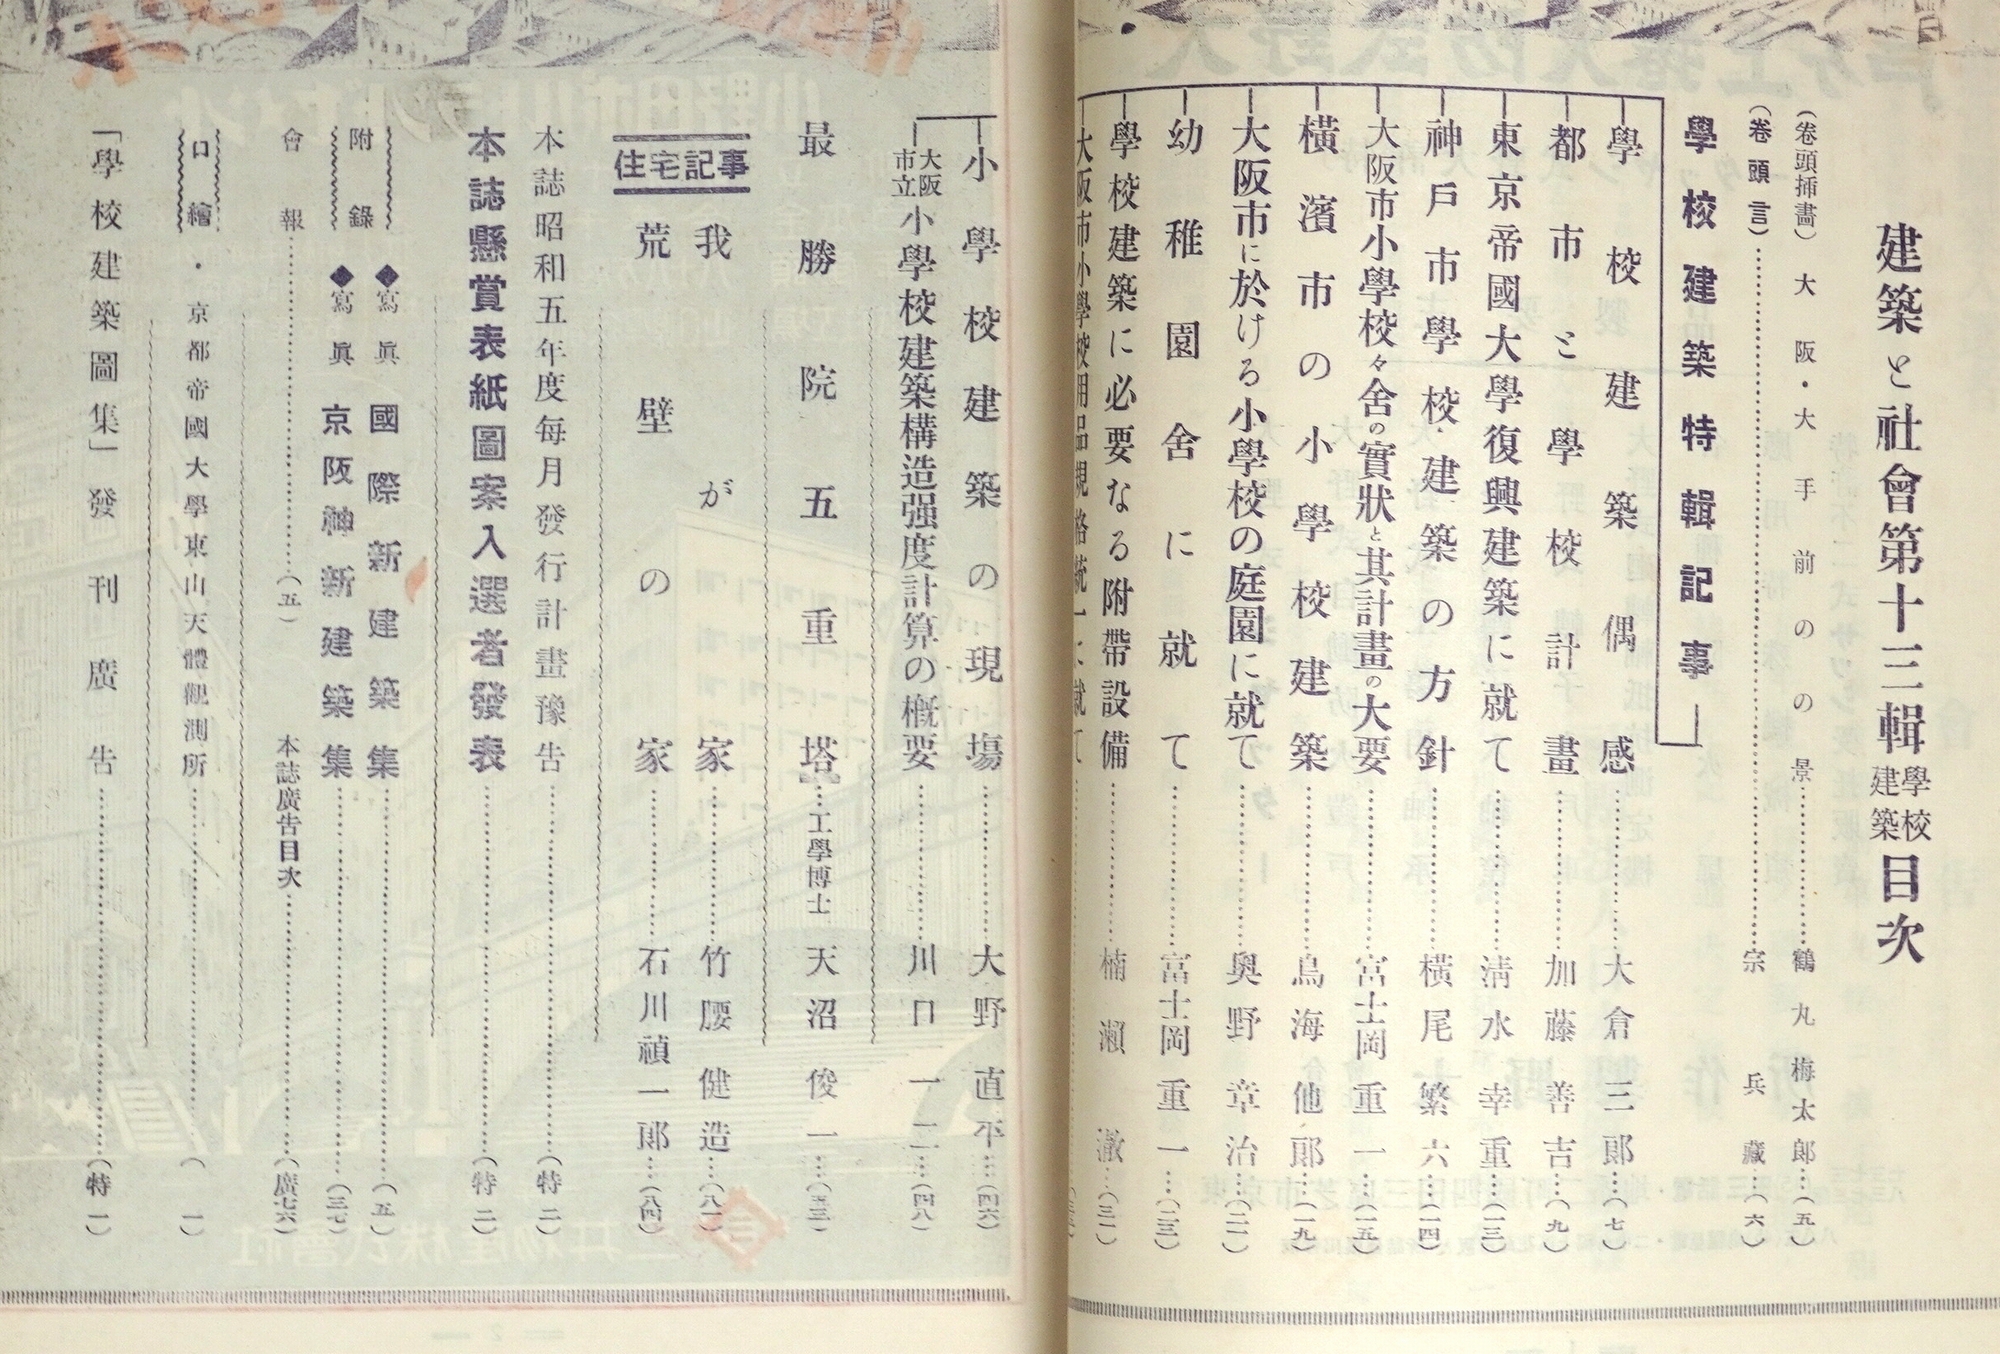 建築と社會第十三輯 學校建築 目次
(卷頭揷畵) 大阪・大手前の景 鶴丸梅太郎 (五)
(卷頭言) 宗兵藏 (六)
學校建築特輯記事
學校建築偶感 大倉三郎 (七)
都市と學校計畫 加藤善吉 (九)
東京帝國大學復興建築に就て 淸水幸重 (一三)
神戶市學校建築の方針 橫尾繁六 (一四)
大阪市小學校々舍の實狀と其計畫の大要 富士岡重一 (一五)
橫濱市の小學校建築 鳥海他郞 (一九)
大阪市に於ける小學校の庭園に就て 奧野章治 (二一)
幼稚園舍に就て 富士岡重一 (二三)
學校建築に必要なる附帶設備 楠瀨澈 (三一)
大阪市小學校用品規格統一に就て
小學校建築の現場 大野直平 (四六)
大阪市立小學校建築構造强度計算の槪要 川口一二 (四八)
最勝院五重塔 工學博士 天沼俊一 (五三)
住宅記事
我が家 竹腰健造 (八一)
荒壁の家 石川禎一郞 (八四)
本誌昭和五年度每月發行計畫豫吿 (特二)
本誌懸賞表紙圖案入選者發表 (特二)
附錄 ◆寫眞 國際新建築集 (五)
◆寫眞 京阪神新建築集 (三七)
會報 (五) 本誌廣吿目次 (廣七六)
口繪・京都帝國大學東山天體觀測所 (一)
「學校建築圖集」發刊廣吿 (特一)